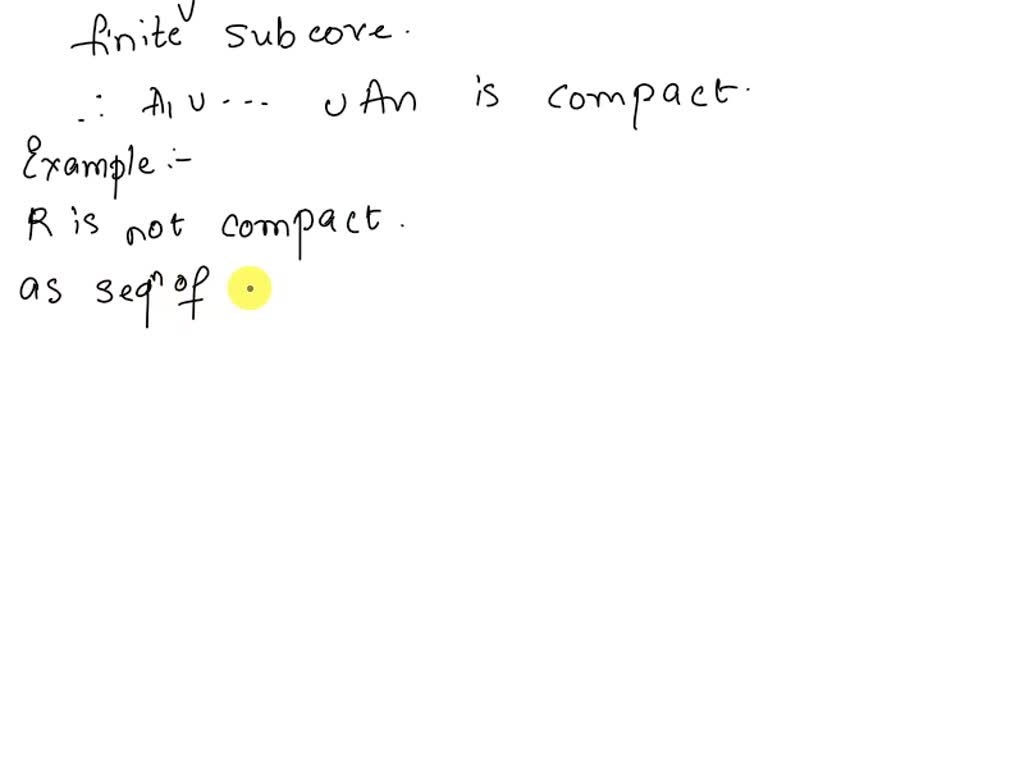 finite subcove.
∴ A₁ ∪ --- ∪ An is compact.
Example :-
R is not compact.
as seqⁿ of